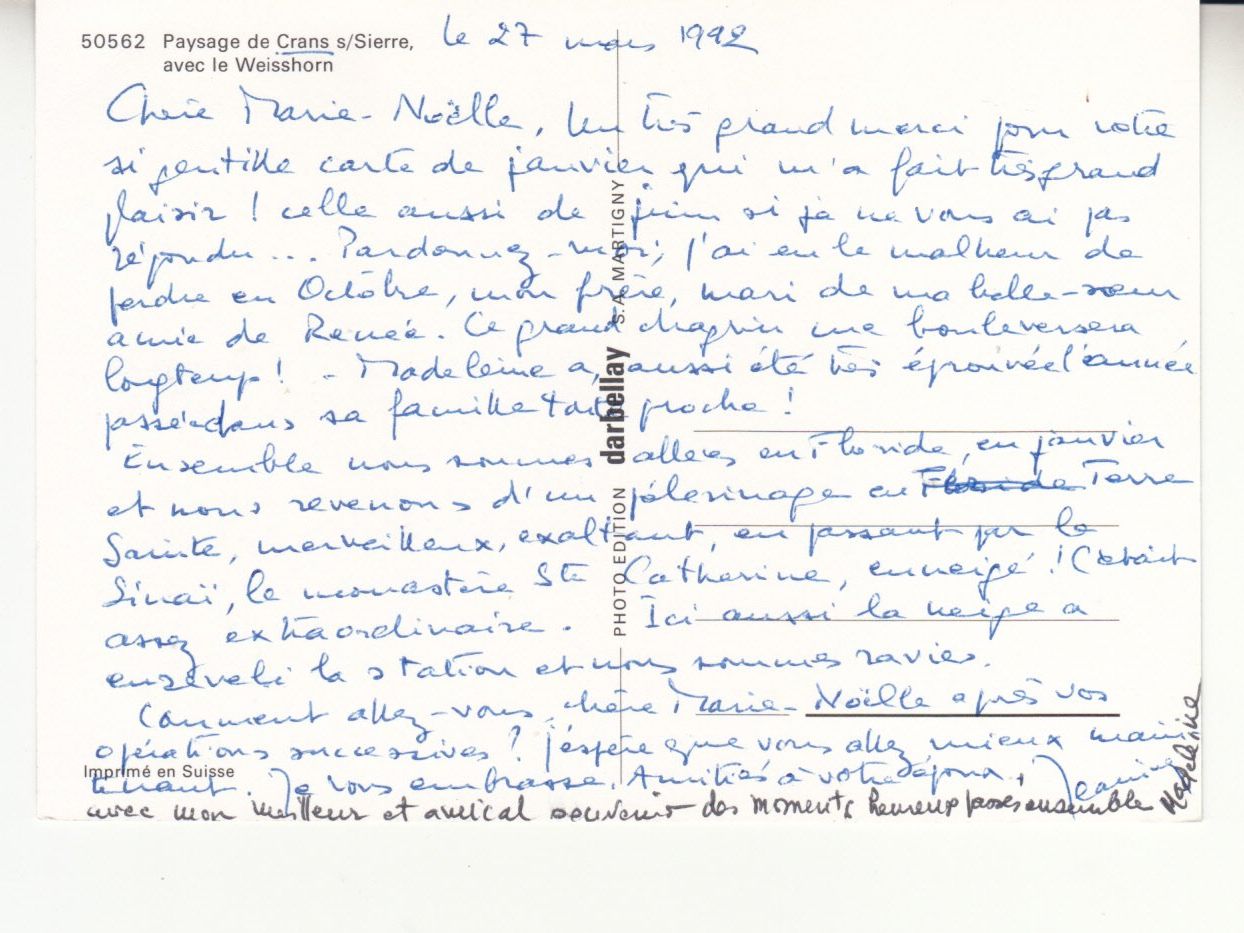 50562 Paysage de Crans s/Sierre,
avec le Weisshorn
le 27 mars 1992
Chère Marie-Noëlle, Un très grand merci pour votre
si gentille carte de janvier qui m'a fait très grand
plaisir ! celle aussi de juin si je ne vous ai pas
répondu... Pardonnez-moi, j'ai eu le malheur de
perdre en Octobre, mon frère, mari de ma belle-sœur
amie de Renée. Ce grand chagrin me bouleversera
longtemps ! - Madeleine a, aussi été très éprouvée l'année
passée dans sa famille toute proche !
Ensemble nous sommes allées en Floride, en janvier
et nous revenons d'un pèlerinage en Floride Terre
Sainte, merveilleux, exaltant, en passant par le
Sinaï, le monastère Ste Catherine, enneigé ! C'était
assez extraordinaire. Ici aussi la neige a
enseveli la station et nous sommes ravies.
Comment allez-vous, chère Marie-Noëlle après vos
opérations successives ? J'espère que vous allez mieux main
tenant. Je vous embrasse. Amitiés à votre époux, Jeanine
avec mon meilleur et amical souvenir des moments heureux passés ensemble Madeleine
PHOTO EDITION darbellay S.A. MARTIGNY
Imprimé en Suisse